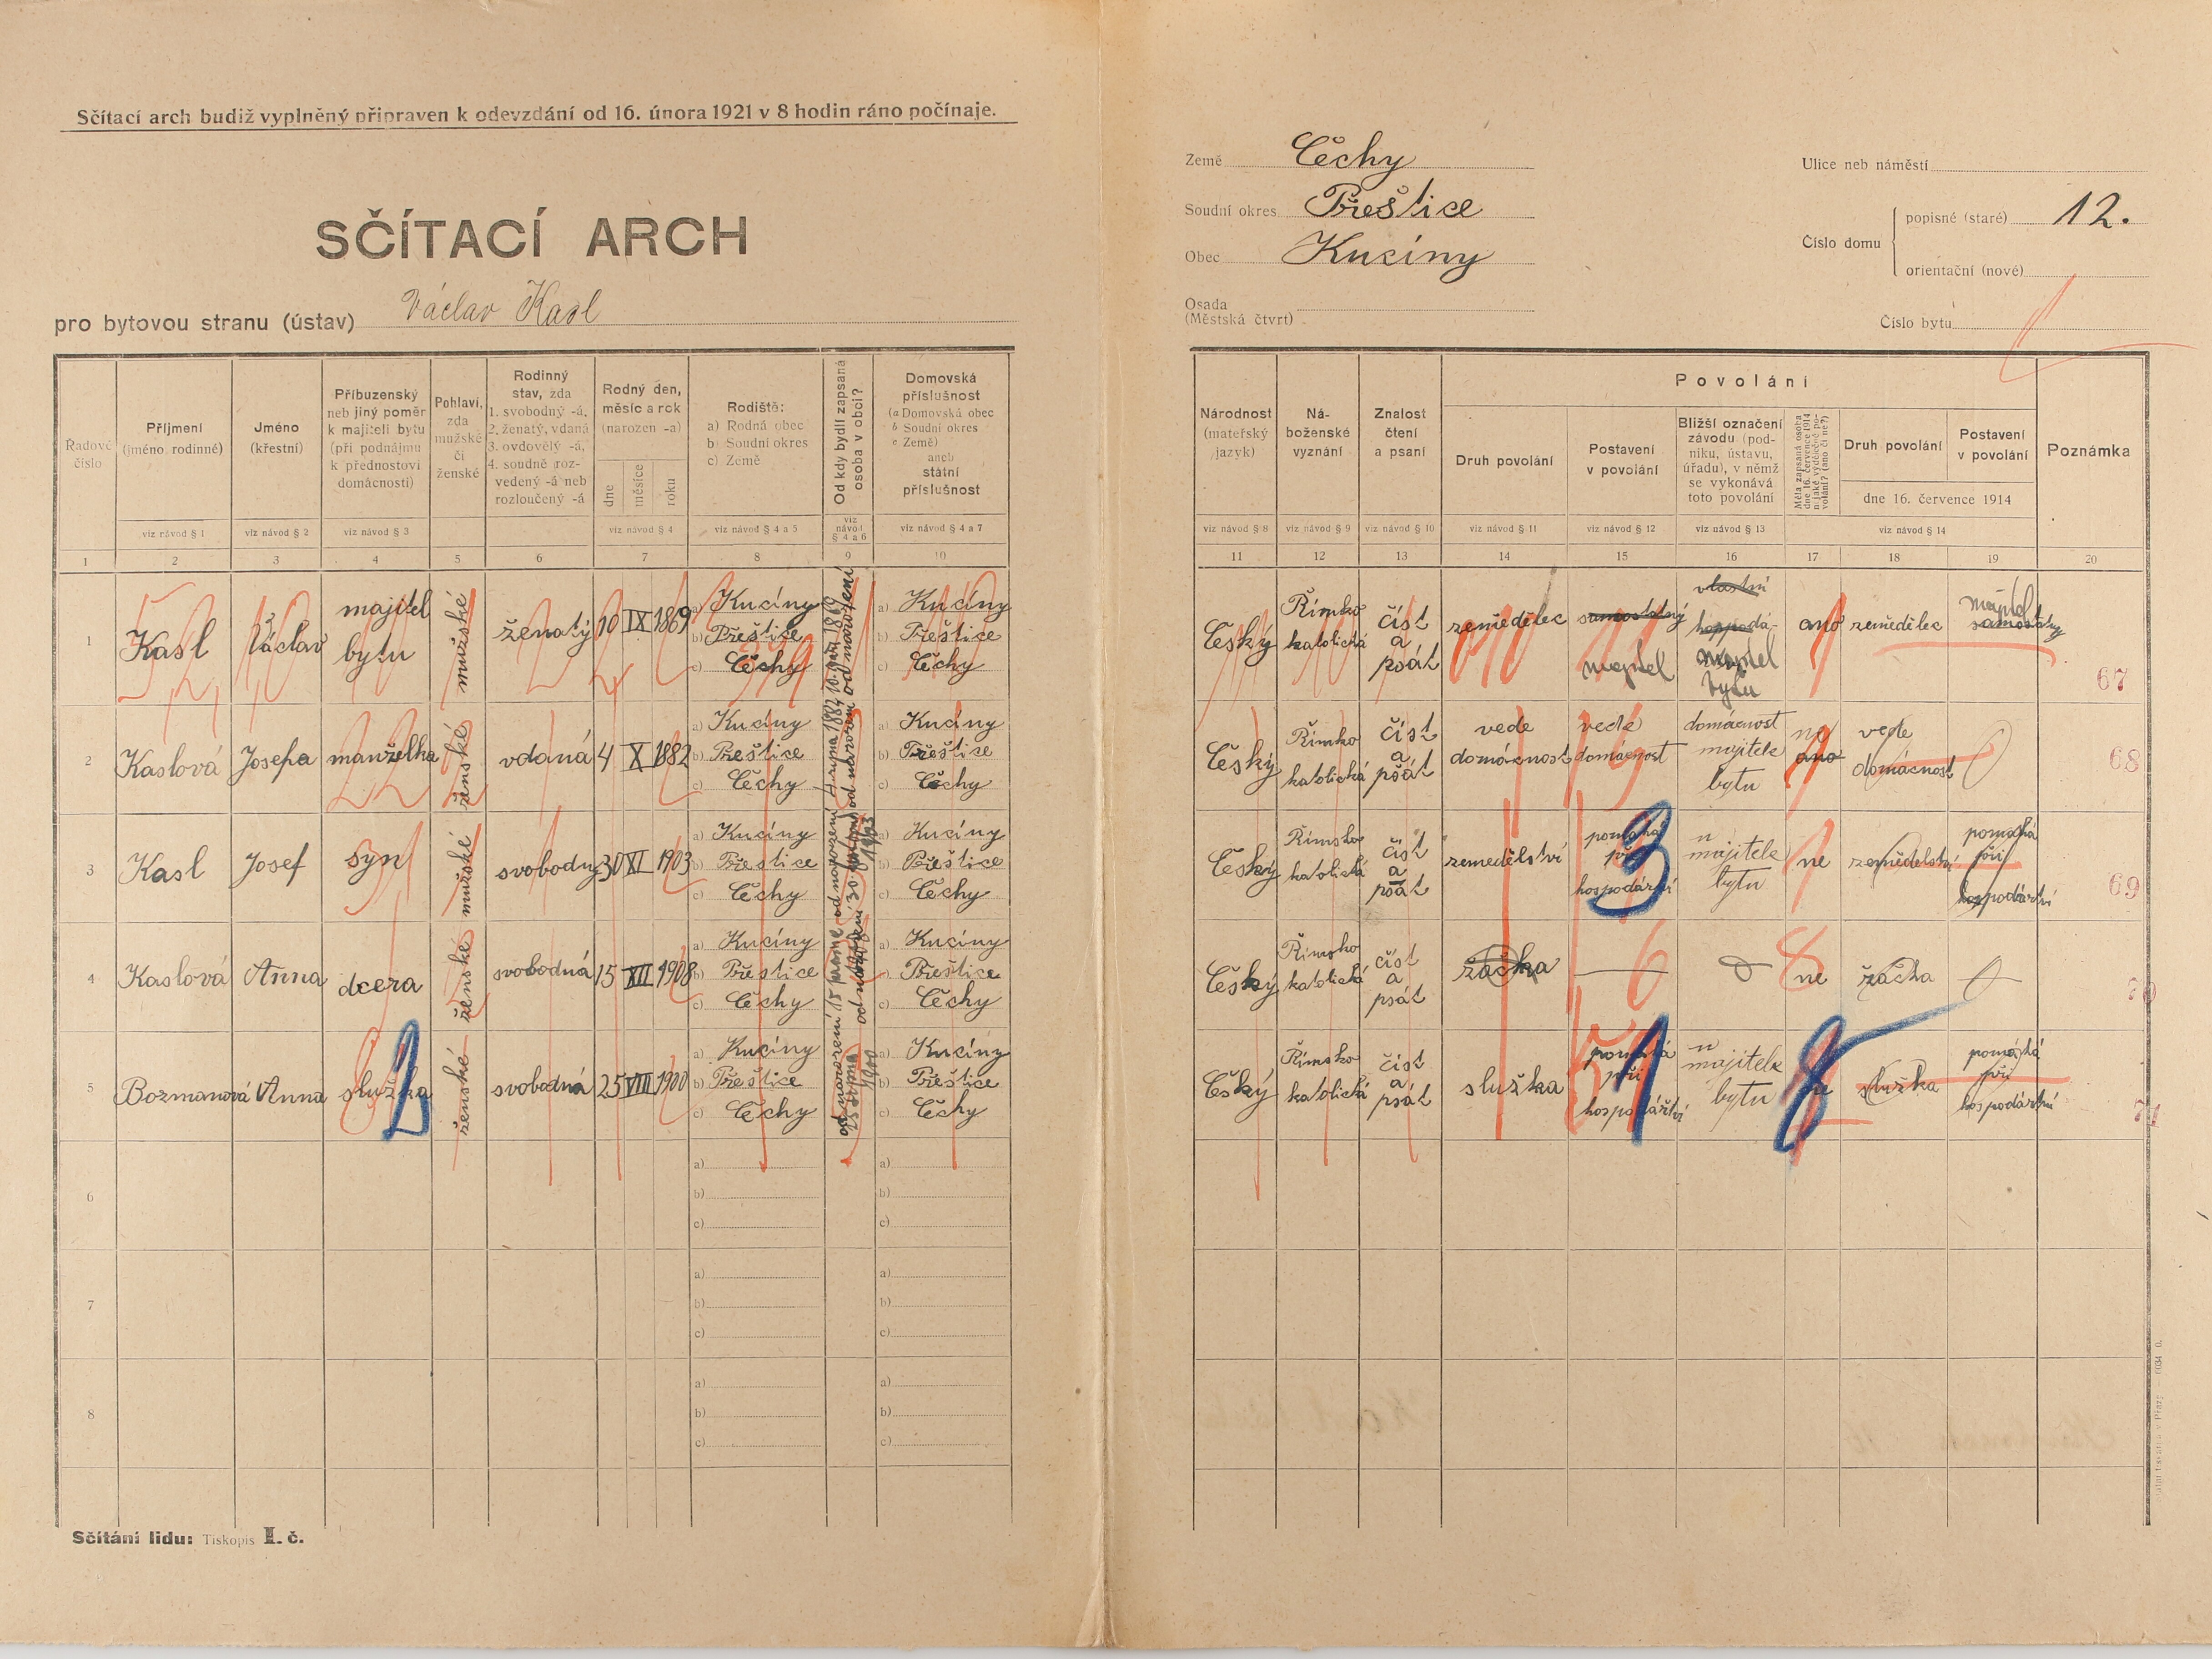 Sčítací arch budiž vyplněný připraven k odevzdání od 16. února 1921 v 8 hodin ráno počínaje.
SČÍTACÍ ARCH
pro bytovou stranu (ústav) Václav Kasl
Země Čechy
Soudní okres Přeštice
Obec Kucíny
Osada
(Městská čtvrt)
Ulice neb náměstí
Číslo domu
popisné (staré) 12.
orientační (nové)
Číslo bytu
Řadové číslo
Příjmení (jméno rodinné)
Jméno (křestní)
Příbuzenský neb jiný poměr k majiteli bytu (při podnájmu k přednostovi domácnosti)
Pohlaví, zda mužské či ženské
Rodinný stav, zda 1. svobodný -á, 2. ženatý, vdaná 3. ovdovělý -á, 4. soudně rozvedený -á neb rozloučený -á
Rodný den, měsíc a rok (narozen -a)
dne měsíce roku
Rodiště: a) Rodná obec b) Soudní okres c) Země
Od kdy bydlí zapsaná osoba v obci?
Domovská příslušnost (a Domovská obec b Soudní okres c Země) aneb státní příslušnost
Národnost (mateřský jazyk)
Náboženské vyznání
Znalost čtení a psaní
Povolání
Druh povolání
Postavení v povolání
Bližší označení závodu (podniku, ústavu, úřadu), v němž se vykonává toto povolání
Měla zapsaná osoba dne 16. července 1914 nějaké výdělečné povolání? (ano či ne?)
Druh povolání
Postavení v povolání
dne 16. července 1914
Poznámka
viz návod § 1 viz návod § 2 viz návod § 3 viz návod § 4 viz návod § 4 a 5 viz návod § 4 a 6 viz návod § 4 a 7
viz návod § 8 viz návod § 9 viz návod § 10 viz návod § 11 viz návod § 12 viz návod § 13 viz návod § 14
1 2 3 4 5 6 7 8 9 10 11 12 13 14 15 16 17 18 19 20
1 Kasl Václav majitel bytu mužské ženatý 10 IX 1869 a) Kucíny b) Přeštice c) Čechy od narození a) Kucíny b) Přeštice c) Čechy
Český Římsko katolická číst a psát zemědělec samostatný majitel vlastní majitel bytu ano zemědělec majitel samostatný 67
2 Kaslová Josefa manželka ženské vdaná 4 X 1882 a) Kucíny b) Přeštice c) Čechy od narození 4. října 1882 a) Kucíny b) Přeštice c) Čechy
Český Římko katolická číst a psát vede domácnost vede domácnost domácnost majitele bytu ne ano vede domácnost 68
3 Kasl Josef syn mužské svobodný 30 XI 1903 a) Kucíny b) Přeštice c) Čechy od narození 1903 a) Kucíny b) Přeštice c) Čechy
Český Římsko katolická číst a psát zemědělství pomáhá při hospodářství u majitele bytu ne zemědělství pomáhá při hospodářství 69
4 Kaslová Anna dcera ženské svobodná 15 XII 1908 a) Kucíny b) Přeštice c) Čechy od narození a) Kucíny b) Přeštice c) Čechy
Český Římsko katolická číst a psát žačka 6 8 ne žačka 70
5 Bozmanová Anna služka ženské svobodná 25 VIII 1900 a) Kucíny b) Přeštice c) Čechy od narození 25 srpna 1900 a) Kucíny b) Přeštice c) Čechy
Český Římsko katolická číst a psát služka pomáhá při hospodářství u majitele bytu ne služka pomáhá při hospodářství 71
6 a) b) c) a) b) c)
7 a) b) c) a) b) c)
8 a) b) c) a) b) c)
Sčítání lidu: Tiskopis I. č.